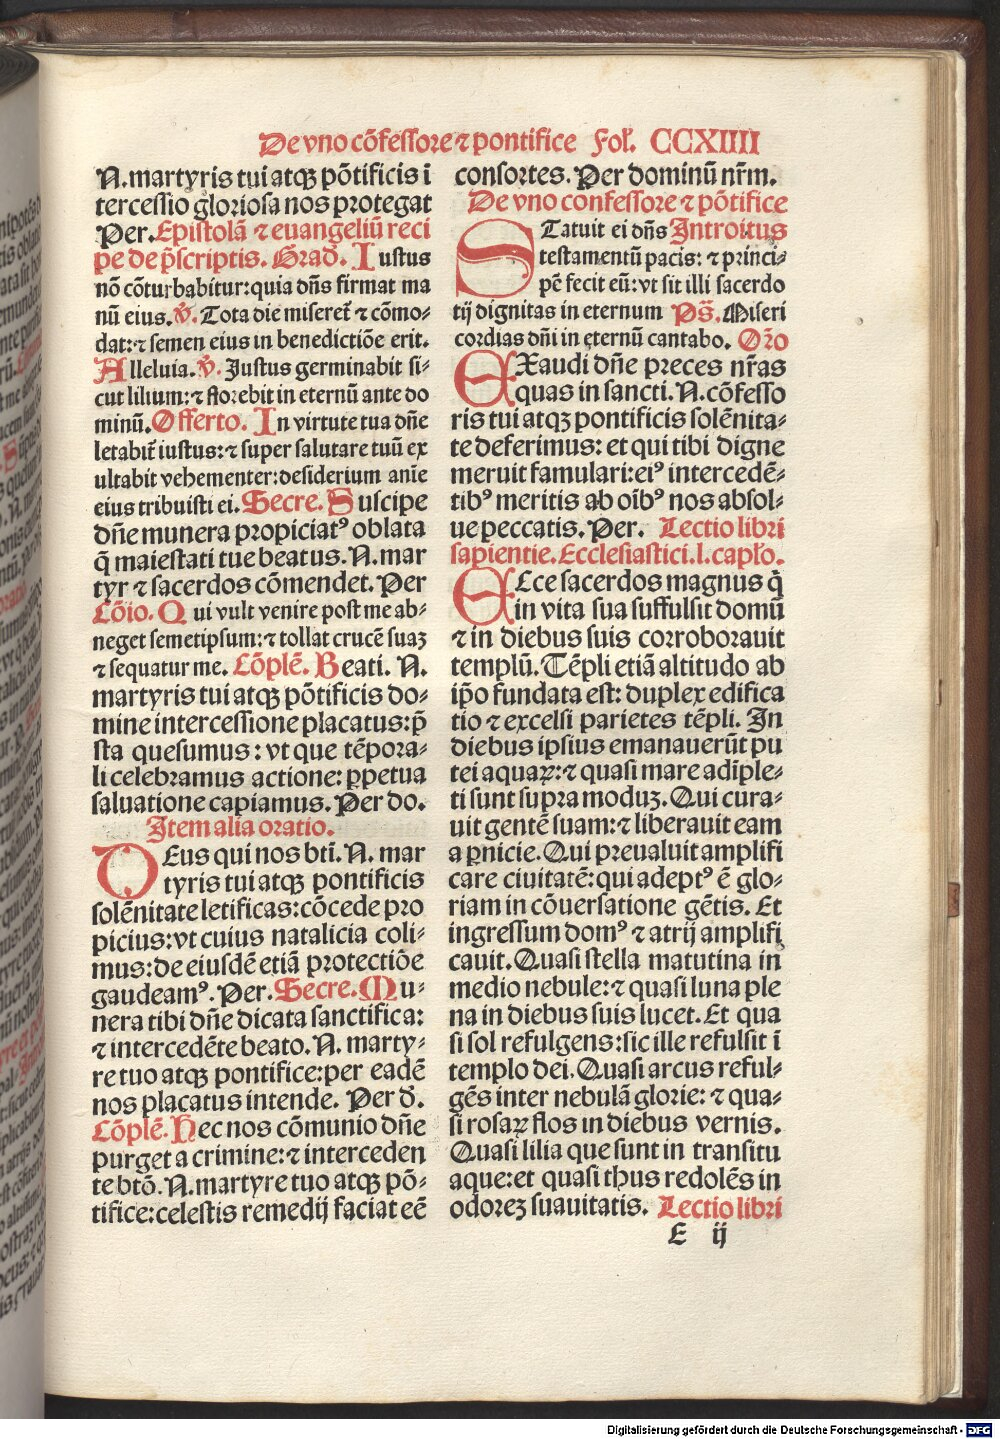 De vno cõfessore ⁊ pontifice Fol. CCXIIII
N. martyris tui atqꝫ põtificis ĩ
tercessio gloriosa nos protegat
Per. Epistolã ⁊ euangeliũ reci
pe de p̃scriptis. Grad. Iustus
nõ cõturbabitur: quia dñs firmat ma
nũ eius. ℣. Tota die miseret᷑ ⁊ cõmo⸗
dat: ⁊ semen eius in benedictiõe erit.
Alleluia. ℣. Justus germinabit si⸗
cut lilium: ⁊ florebit in eternũ ante do
minũ. Offerto. In virtute tua dñe
letabit᷑ iustus: ⁊ super salutare tuũ ex
ultabit vehementer: desiderium anĩe
eius tribuisti ei. Secre. Suscipe
dñe munera propiciatꝰ oblata
q̃ maiestati tue beatus. N. mar
tyr ⁊ sacerdos cõmendet. Per
Cõio. Qui vult venire post me ab⸗
neget semetipsum: ⁊ tollat crucẽ suaꝫ
⁊ sequatur me. Cõplẽ. Beati. N.
martyris tui atqꝫ põtificis do⸗
mine intercessione placatus: p̃
sta quesumus: vt que tẽpora⸗
li celebramus actione: ꝑpetua
saluatione capiamus. Per do.
Item alia oratio.
DEus qui nos bti̇̃. N. mar
tyris tui atqꝫ pontificis
solẽnitate letificas: cõcede pro
picius: vt cuius natalicia coli⸗
mus: de eiusdẽ etiã protectiõe
gaudeamꝰ. Per. Secre. Mu⸗
nera tibi dñe dicata sanctifica:
⁊ intercedẽte beato. N. marty⸗
re tuo atqꝫ pontifice: per eadẽ
nos placatus intende. Per d̃.
Cõplẽ. Hec nos cõmunio dñe
purget a crimine: ⁊ interceden
te btõ. N. martyre tuo atqꝫ põ⸗
tifice: celestis remedij faciat eẽ
consortes. Per dominũ nr̃m.
De vno confessore ⁊ põtifice
STatuit ei dñs Introitus
testamentũ pacis: ⁊ princi⸗
pẽ fecit eũ: vt sit illi sacerdo
tij dignitas in eternum Ps̃. Miseri
cordias dñi in eternũ cantabo. Or̃o
EXaudi dñe preces nr̃as
quas in sancti. N. cõfesso
ris tui atqꝫ pontificis solẽnita⸗
te deferimus: et qui tibi digne
meruit famulari: eiꝰ intercedẽ⸗
tibꝰ meritis ab oĩbꝰ nos absol⸗
ue peccatis. Per. Lectio libri
sapientie. Ecclesiastici. l. capło.
ECce sacerdos magnus q̃
in vita sua suffulsit domũ
⁊ in diebus suis corroborauit
templũ. Tẽpli etiã altitudo ab
ip̃o fundata est: duplex edifica
tio ⁊ excelsi parietes tẽpli. In
diebus ipsius emanauerũt pu
tei aquaꝝ: ⁊ quasi mare adĩple⸗
ti sunt supra moduꝫ. Qui cura⸗
uit gentẽ suam: ⁊ liberauit eam
a ꝑnicie. Qui preualuit amplifi
care ciuitatẽ: qui adeptꝰ ẽ glo⸗
riam in cõuersatione gẽtis. Et
ingressum domꝰ ⁊ atrij amplifi
cauit. Quasi stella matutina in
medio nebule: ⁊ quasi luna ple
na in diebus suis lucet. Et qua
si sol refulgens: sic ille refulsit ĩ
templo dei. Quasi arcus reful⸗
gẽs inter nebulã glorie: ⁊ qua⸗
si rosaꝝ flos in diebus vernis.
Quasi lilia que sunt in transitu
aque: et quasi thus redolẽs in
odoreꝫ suauitatis. Lectio libri
E ij
Digitalisierung gefördert durch die Deutsche Forschungsgemeinschaft - DFG